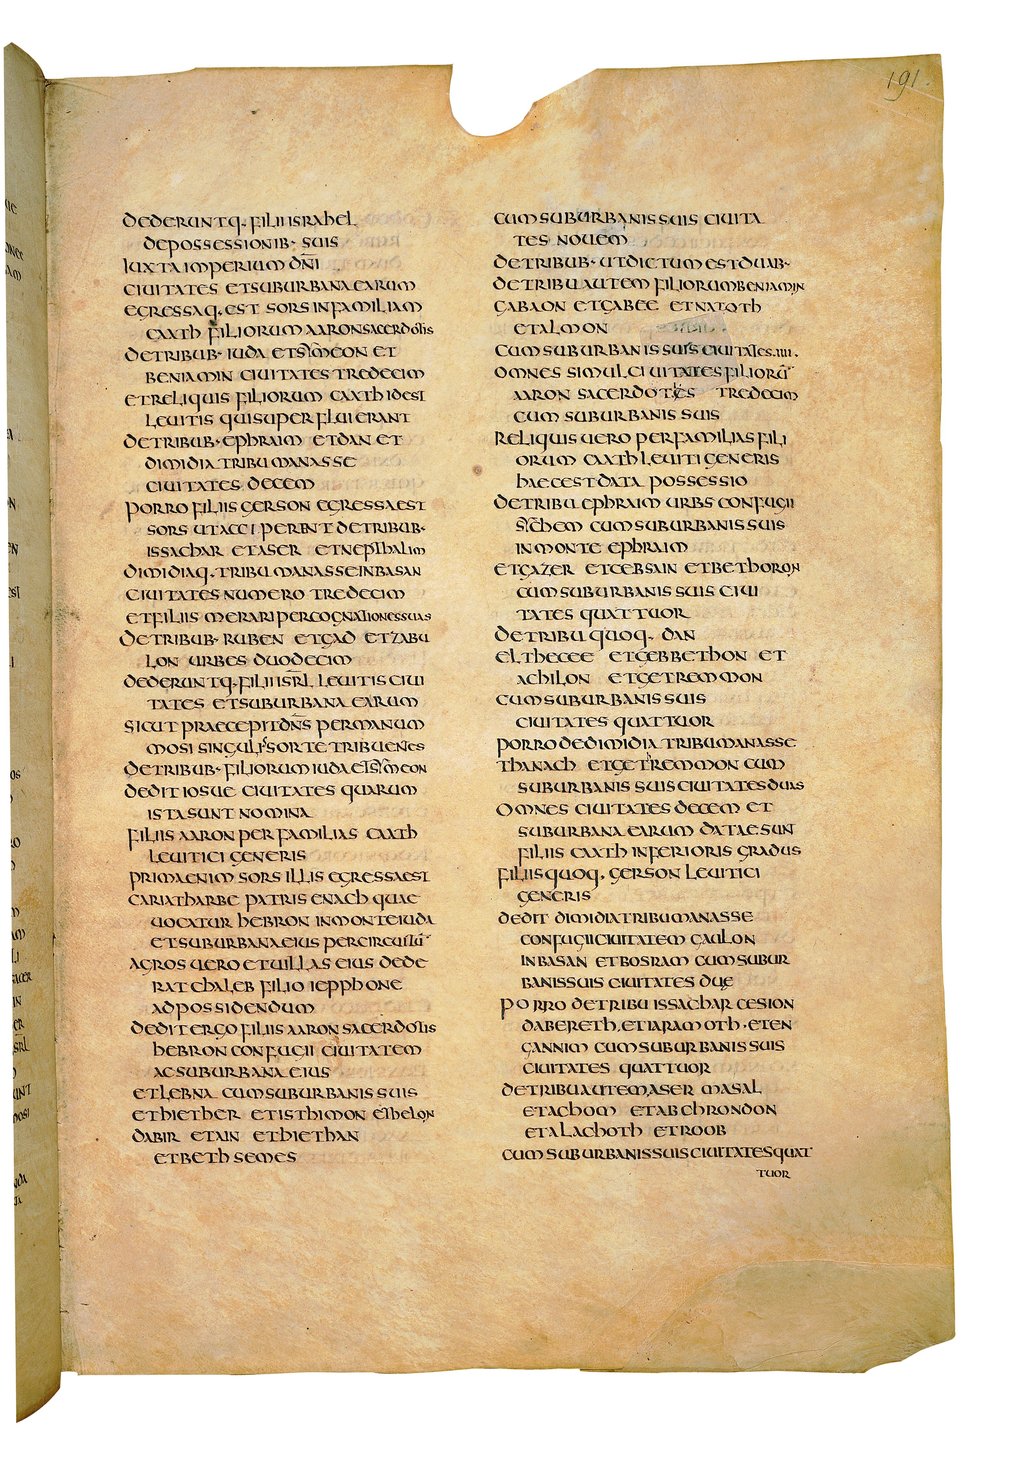 191.
DEDERUNTQ· FILII ISRAHEL
DEPOSSESSIONIB· SUIS
IUXTA IMPERIUM DN̄I
CIUITATES ET SUBURBANA EARUM
EGRESSAQ· EST SORS IN FAMILIAM
CAATH FILIORUM AARON SACERDOTIS
DE TRIBUB· IUDA ET SYMEON ET
BENIAMIN CIUITATES TREDECIM
ET RELIQUIS FILIORUM CAATH ID EST
LEUITIS QUI SUPERFLUI ERANT
DE TRIBUB· EPHRAIM ET DAN ET
DIMIDIA TRIBU MANASSE
CIUITATES DECEM
PORRO FILIIS GERSON EGRESSA EST
SORS UT ACCIPERENT DE TRIBUB·
ISSACHAR ET ASER ET NEPTHALIM
DIMIDIAQ· TRIBU MANASSE IN BASAN
CIUITATES NUMERO TREDECIM
ET FILIIS MERARI PER COGNATIONES SUAS
DE TRIBUB· RUBEN ET GAD ET ZABU
LON URBES DUODECIM
DEDERUNTQ· FILII ISRL̄ LEUITIS CIUI
TATES ET SUBURBANA EARUM
SICUT PRAECEPIT DN̄S PER MANUM
MOSI SINGULIS SORTE TRIBUENES
DE TRIBUB· FILIORUM IUDA ET SYMEON
DEDIT IOSUE CIUITATES QUARUM
ISTA SUNT NOMINA
FILIIS AARON PER FAMILIAS CAATH
LEUITICI GENERIS
PRIMA ENIM SORS ILLIS EGRESSA EST
CARIATHARBE PATRIS ENACH QUAE
UOCATUR HEBRON IN MONTE IUDA
ET SUBURBANA EIUS PER CIRCUITŪ
AGROS UERO ET UILLAS EIUS DEDE
RAT CHALEB FILIO IEPPHONE
AD POSSIDENDUM
DEDIT ERGO FILIIS AARON SACERDOTIS
HEBRON CONFUGII CIUITATEM
AC SUBURBANA EIUS
ET LEBNA CUM SUBURBANIS SUIS
ET HIETHER ET ISTHIMON ET HELON
DABIR ET AIN ET HIETHAN
ET BETH SEMES
CUM SUBURBANIS SUIS CIUITA
TES NOUEM
DE TRIBUB· UT DICTUM EST DUAB·
DE TRIBU AUTEM FILIORUM BENIAMIN
GABAON ET GABEE ET NATOTH
ET ALMON
CUM SUBURBANIS SUIS CIUITATES·IIII·
OMNES SIMUL CIUITATES FILIORŪ
AARON SACERDOTES TREDECIM
CUM SUBURBANIS SUIS
RELIQUIS UERO PER FAMILIAS FILI
ORUM CAATH LEUITI GENERIS
HAEC EST DATA POSSESSIO
DE TRIBU EPHRAIM URBS CONFUGII
SYCHEM CUM SUBURBANIS SUIS
IN MONTE EPHRAIM
ET GAZER ET CEBSAIN ET BETHORON
CUM SUBURBANIS SUIS CIUI
TATES QUATTUOR
DE TRIBU QUOQ· DAN
ELTHECEE ET GEBBETHON ET
ACHILON ET GETREMMON
CUM SUBURBANIS SUIS
CIUITATES QUATTUOR
PORRO DE DIMIDIA TRIBU MANASSE
THANACH ET GETREMMON CUM
SUBURBANIS SUIS CIUITATES DUAS
OMNES CIUITATES DECEM ET
SUBURBANA EARUM DATAE SUNT
FILIIS CAATH INFERIORIS GRADUS
FILIIS QUOQ· GERSON LEUITICI
GENERIS
DEDIT DIMIDIA TRIBU MANASSE
CONFUGII CIUITATEM GAULON
IN BASAN ET BOSRAM CUM SUBUR
BANIS SUIS CIUITATES DUE
PORRO DE TRIBU ISSACHAR CESION
DABERETH· ET IARAMOTH· ET EN
GANNIM CUM SUBURBANIS SUIS
CIUITATES QUATTUOR
DE TRIBU AUTEM ASER MASAL
ET ACHOM ET ABCHRONDON
ET ALACHOTH ET ROOB
CUM SUBURBANIS SUIS CIUITATES QUAT
TUOR